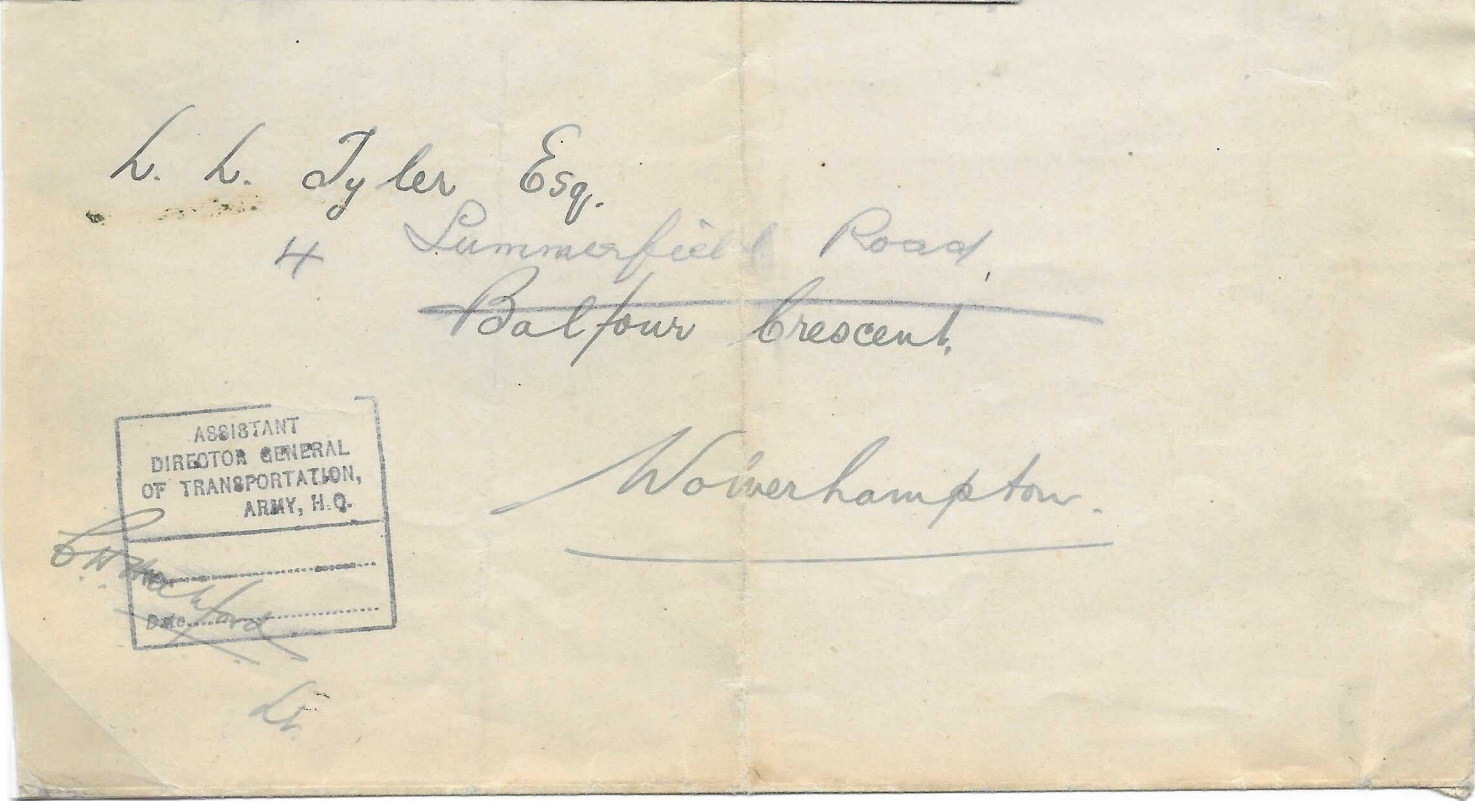 L. L. Tyler Esq.
4 Summerfield Road,
Balfour Crescent,
Wolverhampton.
ASSISTANT
DIRECTOR GENERAL
OF TRANSPORTATION,
ARMY, H.Q.
Date
Lt.